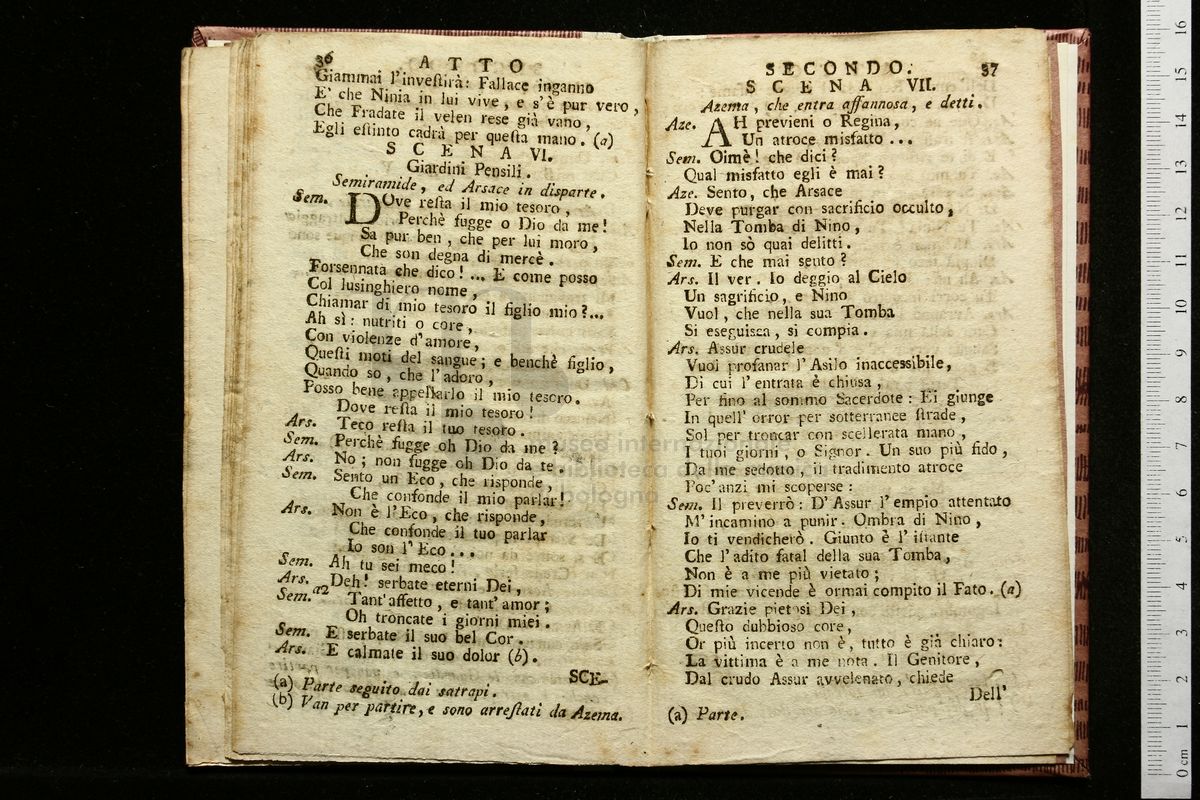 36
A T T O
Giammai l'inveſtirà: Fallace inganno
E' che Ninia in lui vive, e s'è pur vero,
Che Fradate il velen rese già vano,
Egli eſtinto cadrà per queſta mano. (a)
S C E N A VI.
Giardini Penſili.
Semiramide, ed Arsace in disparte.
Sem. DOve reſta il mio tesoro,
Perchè fugge o Dio da me!
Sa pur ben, che per lui moro,
Che son degna di mercè.
Forsennata che dico! ... E come posso
Col lusinghiero nome,
Chiamar di mio tesoro il figlio mio?...
Ah sì: nutriti o core,
Con violenze d'amore,
Queſti moti del sangue; e benchè figlio,
Quando so, che l'adoro,
Posso bene appellarlo il mio tesoro.
Dove reſta il mio tesoro!
Ars. Teco reſta il tuo tesoro.
Sem. Perchè fugge oh Dio da me?
Ars. No; non fugge oh Dio da te.
Sem. Sento un Eco, che risponde,
Che confonde il mio parlar!
Ars. Non è l'Eco, che risponde,
Che confonde il tuo parlar
Io son l'Eco...
Sem. Ah tu sei meco!
Ars. Deh! serbate eterni Dei,
Sem. a2 Tant'affetto, e tant'amor;
Oh troncate i giorni miei.
Sem. E serbate il suo bel Cor.
Ars. E calmate il suo dolor (b).
SCE-
(a) Parte seguito dai satrapi.
(b) Van per partire, e sono arreſtati da Azema.
SECONDO. 37
S C E N A VII.
Azema, che entra affannosa, e detti.
Aze. AH previeni o Regina,
Un atroce misfatto...
Sem. Oimè! che dici?
Qual misfatto egli è mai?
Aze. Sento, che Arsace
Deve purgar con sacrificio occulto,
Nella Tomba di Nino,
Io non sò quai delitti.
Sem. E che mai sento?
Ars. Il ver. Io deggio al Cielo
Un sagrificio, e Nino
Vuol, che nella sua Tomba
Si eseguisca, si compia.
Ars. Assur crudele
Vuol profanar l'Asilo inaccessibile,
Di cui l'entrata è chiusa,
Per fino al sommo Sacerdote: Ei giunge
In quell' orror per sotterranee ſtrade,
Sol per troncar con scellerata mano,
I tuoi giorni, o Signor. Un suo più fido,
Da me sedotto, il tradimento atroce
Poc'anzi mi scoperse:
Sem. Il preverrò: D'Assur l'empio attentato
M'incamino a punir. Ombra di Nino,
Io ti vendicherò. Giunto è l'iſtante
Che l'adito fatal della sua Tomba,
Non è a me più vietato;
Di mie vicende è ormai compito il Fato. (a)
Ars. Grazie pietosi Dei,
Queſto dubbioso core,
Or più incerto non è, tutto è già chiaro:
La vittima è a me nota. Il Genitore,
Dal crudo Assur avvelenato, chiede
Dell'
(a) Parte.
museo internazionale
biblioteca
bologna
0 cm 1 2 3 4 5 6 7 8 9 10 11 12 13 14 15 16